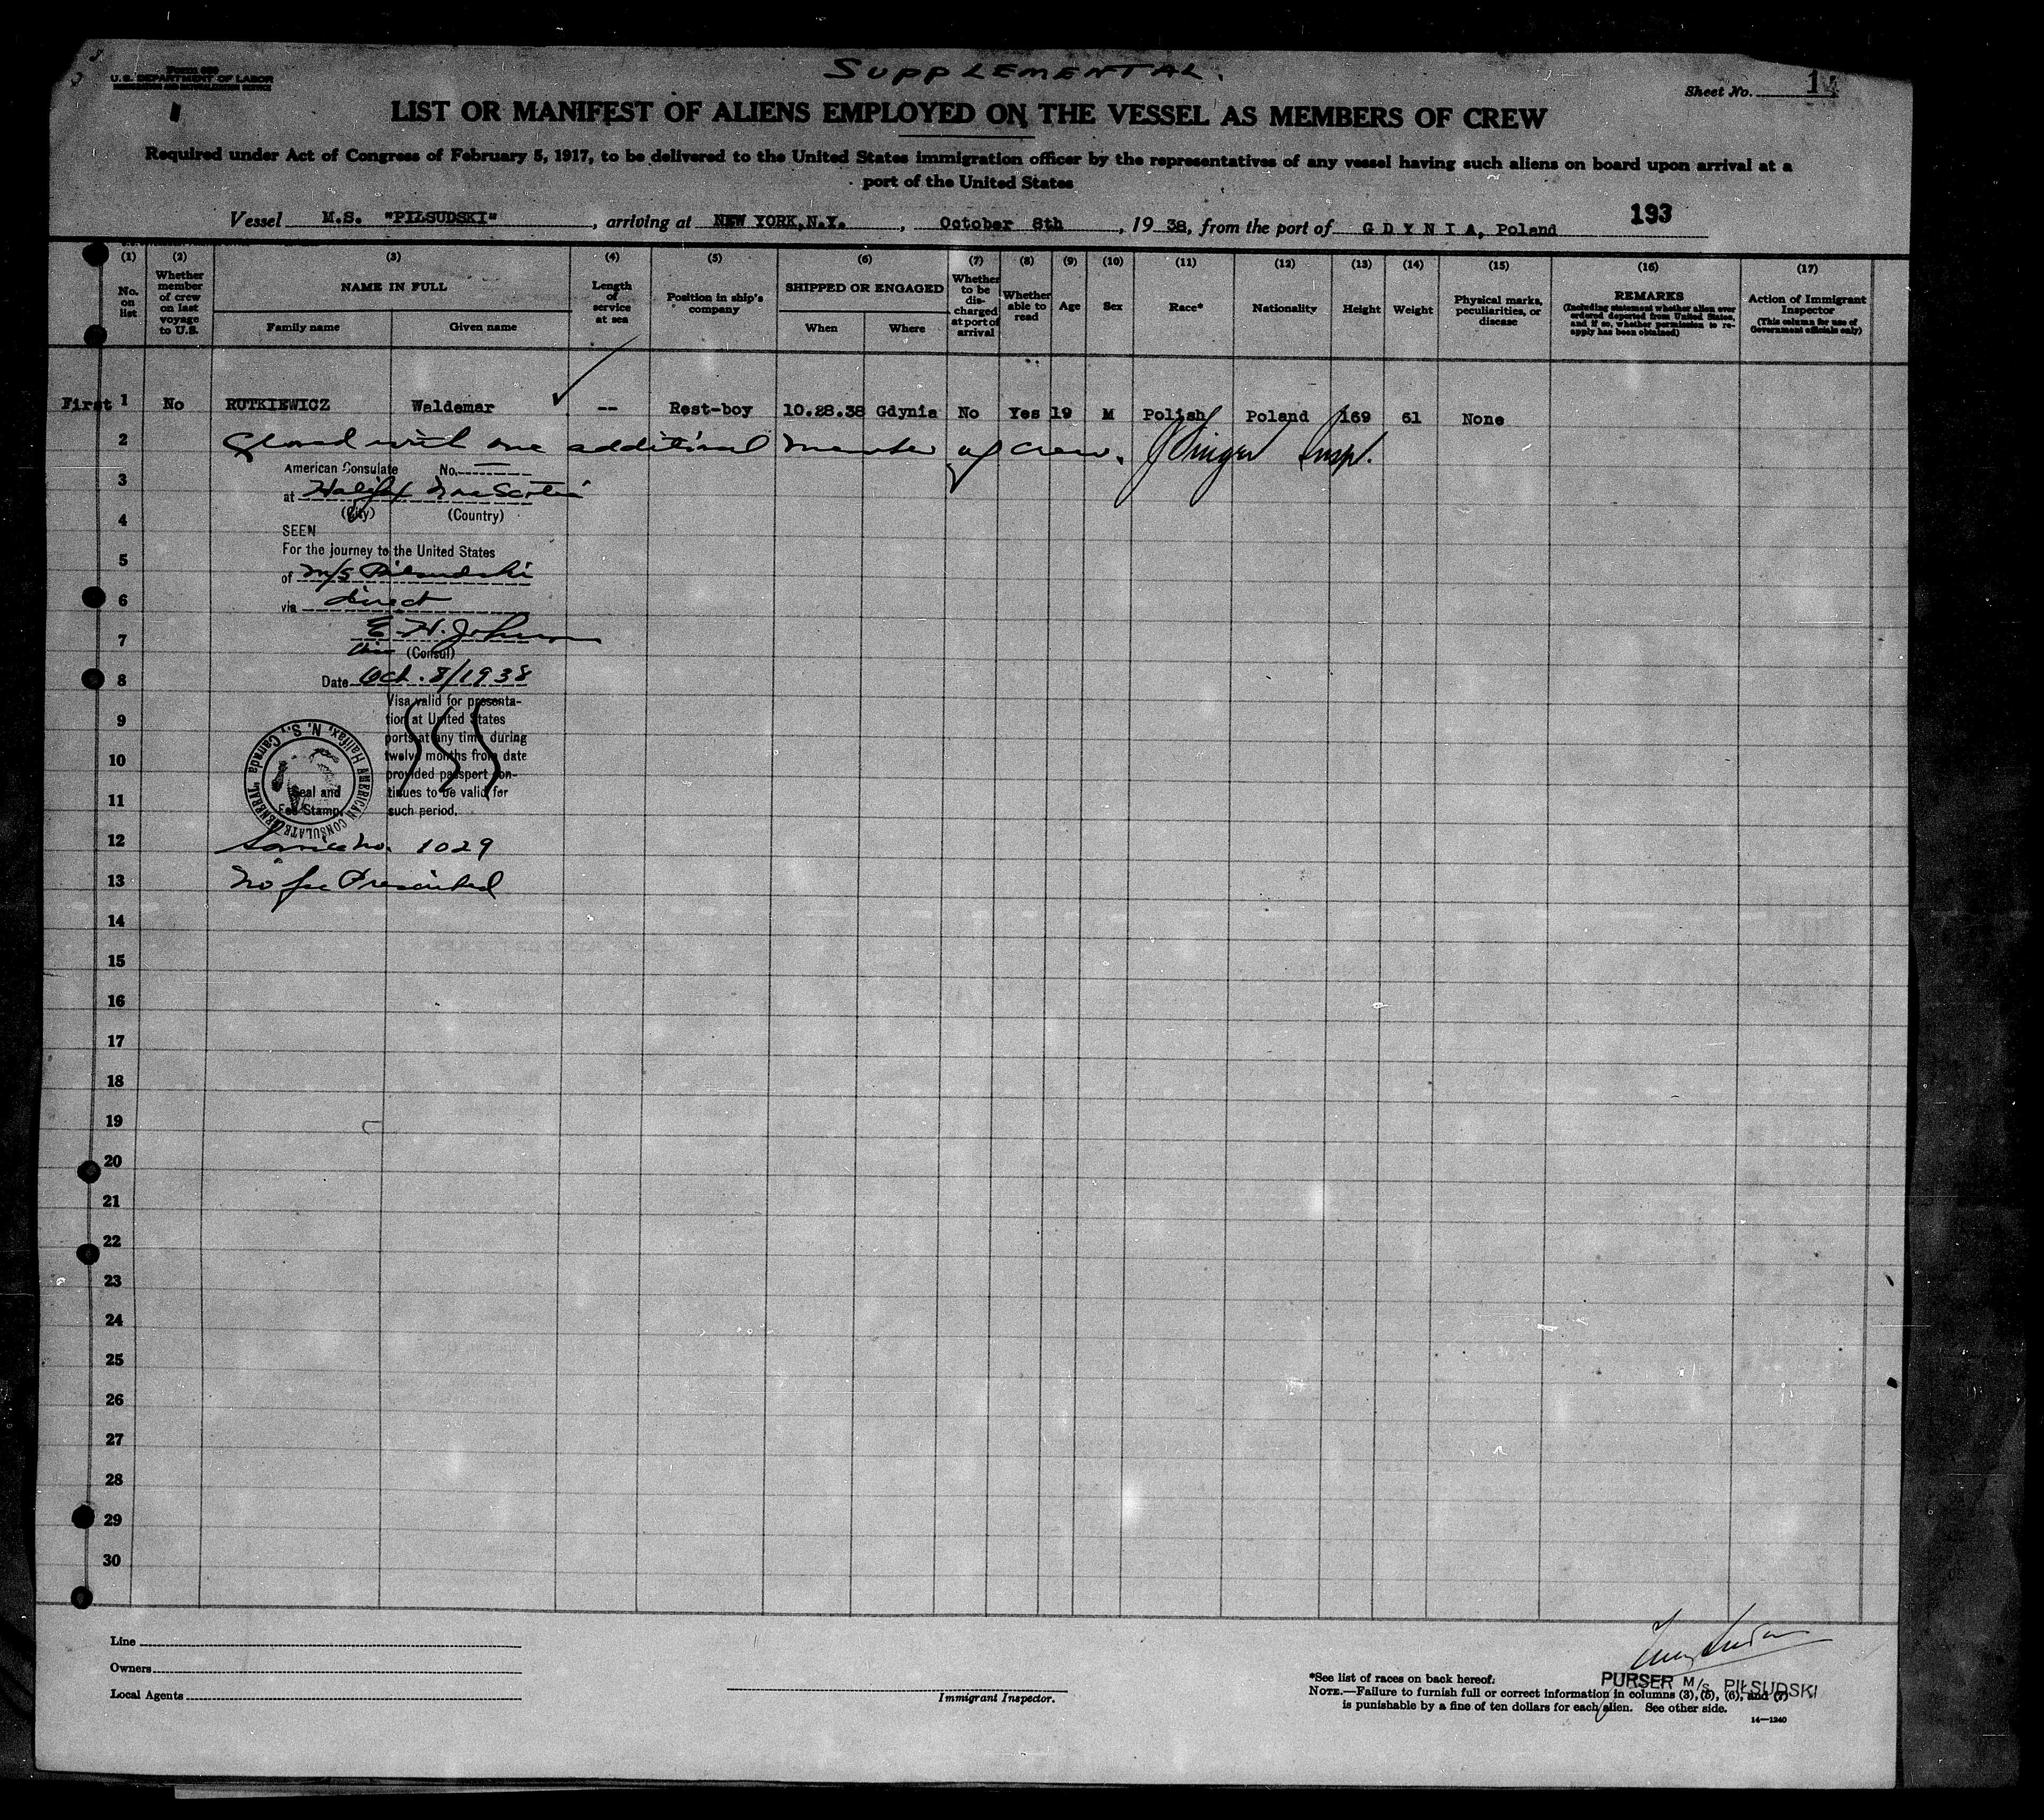 SUPPLEMENTAL.
Form 680
U.S. DEPARTMENT OF LABOR
IMMIGRATION AND NATURALIZATION SERVICE
Sheet No. 14
LIST OR MANIFEST OF ALIENS EMPLOYED ON THE VESSEL AS MEMBERS OF CREW
Required under Act of Congress of February 5, 1917, to be delivered to the United States immigration officer by the representatives of any vessel having such aliens on board upon arrival at a
port of the United States
193
Vessel M.S. "PIŁSUDSKI", arriving at NEW YORK, N.Y., October 8th, 19 38, from the port of GDYNIA, Poland
(1) (2) (3) (4) (5) (6) (7) (8) (9) (10) (11) (12) (13) (14) (15) (16) (17)
No. on list
Whether member of crew on last voyage to U.S.
NAME IN FULL
Family name
Given name
Length of service at sea
Position in ship's company
SHIPPED OR ENGAGED
When
Where
Whether to be discharged at port of arrival
Whether able to read
Age
Sex
Race*
Nationality
Height
Weight
Physical marks, peculiarities, or disease
REMARKS
(Including statement whether alien ever ordered deported from United States, and if so, whether permission to reapply has been obtained)
Action of Immigrant Inspector
(This column for use of Government officials only)
First 1 No RUTKIEWICZ Waldemar -- Rest-boy 10.28.38 Gdynia No Yes 19 M Polish Poland 169 61 None
2 Closed with one additional member of crew. Insp.
3
American Consulate No.
at Halifax Nova Scotia
4
(City) (Country)
SEEN
5
For the journey to the United States
of M/S Pilsudski
6
via direct
7
E. H. Johnson
Vice (Consul)
8
Date Oct. 8/1938
9
Visa valid for presenta-
tion at United States
ports at any time during
10
twelve months from date
provided passport con-
11
tinues to be valid for
such period.
Seal and
Fee Stamp
AMERICAN CONSULATE GENERAL
Halifax, N. S., Canada
12 Service No. 1029
13 No fee Prescribed
14
15
16
17
18
19
20
21
22
23
24
25
26
27
28
29
30
Line
Owners
Local Agents
Immigrant Inspector.
PURSER M/S PIŁSUDSKI
*See list of races on back hereof.
NOTE.—Failure to furnish full or correct information in columns (3), (5), (6), and (7)
is punishable by a fine of ten dollars for each alien. See other side.
14—1240